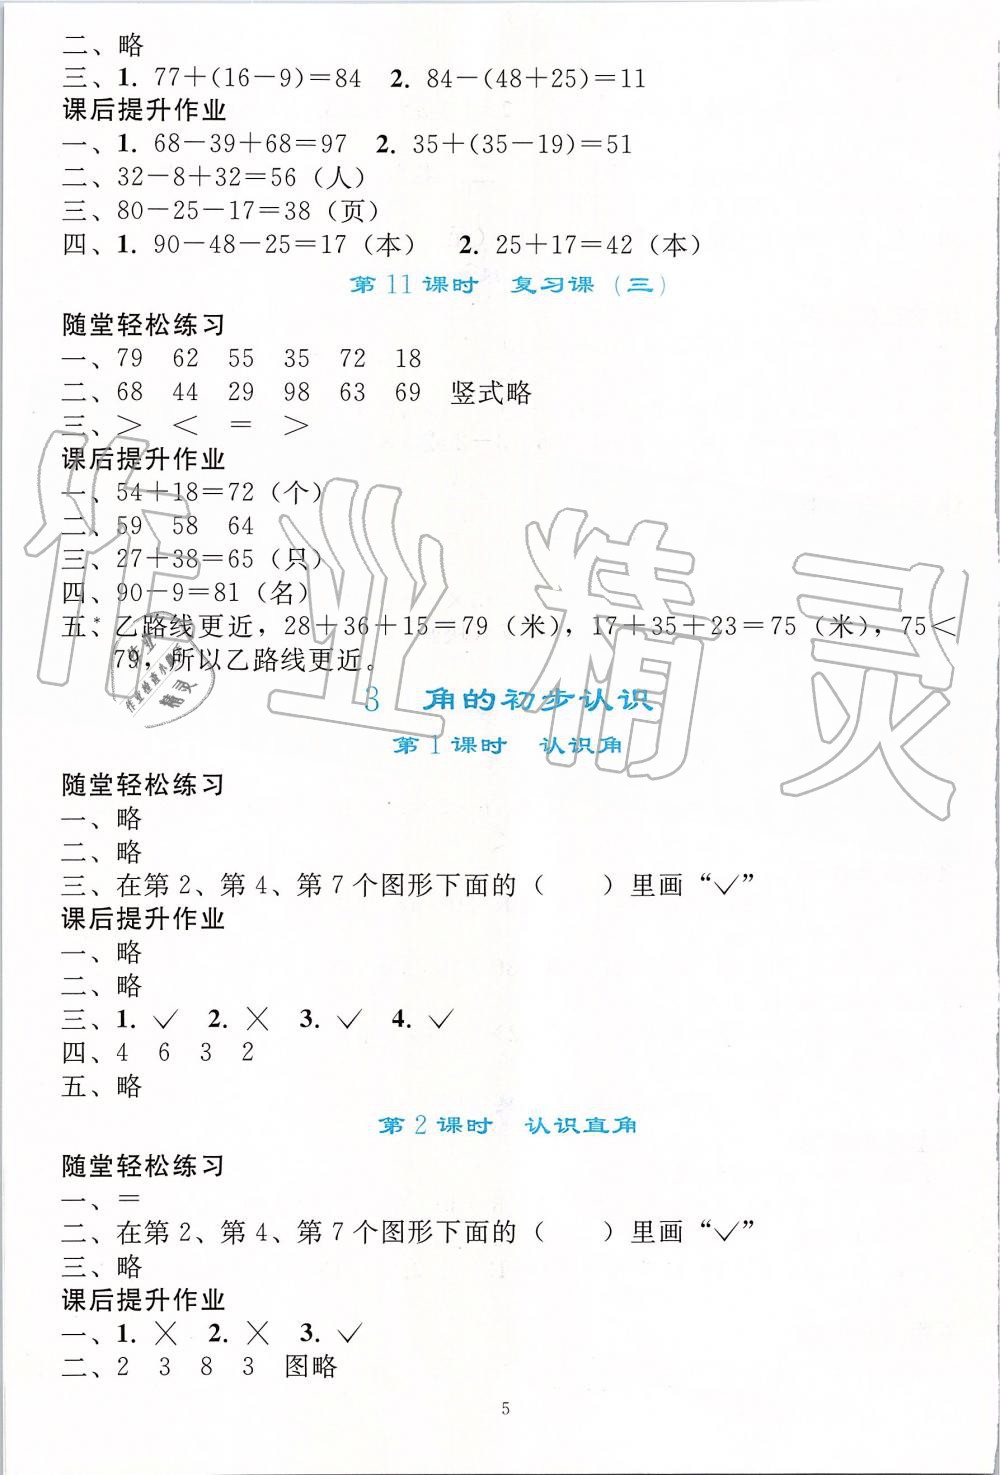 二、略
三、1. 77＋(16－9)＝84　2. 84－(48＋25)＝11
课后提升作业
一、1. 68－39＋68＝97　2. 35＋(35－19)＝51
二、32－8＋32＝56（人）
三、80－25－17＝38（页）
四、1. 90－48－25＝17（本）　2. 25＋17＝42（本）
第11课时　复习课（三）
随堂轻松练习
一、79　62　55　35　72　18
二、68　44　29　98　63　69　竖式略
三、＞　＜　＝　＞
课后提升作业
一、54＋18＝72（个）
二、59　58　64
三、27＋38＝65（只）
四、90－9＝81（名）
五、*乙路线更近，28＋36＋15＝79（米），17＋35＋23＝75（米），75＜
79，所以乙路线更近。
3　角的初步认识
第1课时　认识角
随堂轻松练习
一、略
二、略
三、在第2、第4、第7个图形下面的（　　）里画“✓”
课后提升作业
一、略
二、略
三、1. ✓　2. ×　3. ✓　4. ✓
四、4　6　3　2
五、略
第2课时　认识直角
随堂轻松练习
一、＝
二、在第2、第4、第7个图形下面的（　　）里画“✓”
三、略
课后提升作业
一、1. ×　2. ×　3. ✓
二、2　3　8　3　图略
5
作业精灵